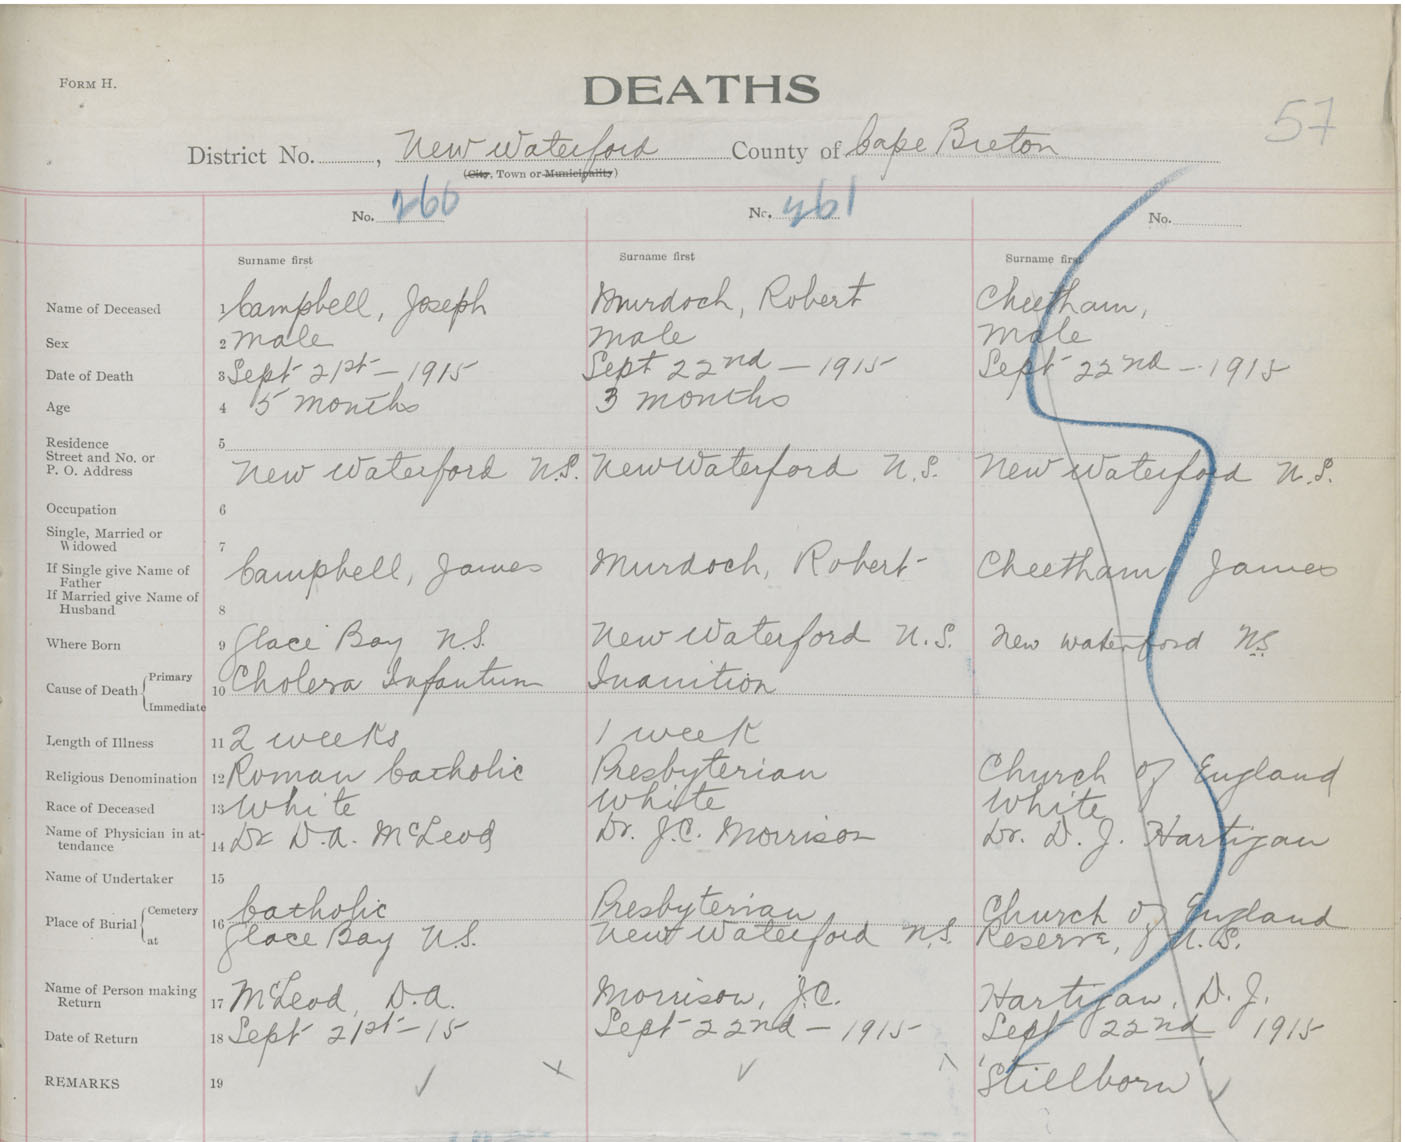 FORM H.
DEATHS
57
District No. , New Waterford County of Cape Breton
(City, Town or Municipality)
No. 260 No. 261 No.
Surname first Surname first Surname first
Name of Deceased 1 Campbell, Joseph Murdoch, Robert Cheetham,
Sex 2 Male Male Male
Date of Death 3 Sept 21st - 1915 Sept 22nd - 1915 Sept 22nd - 1915
Age 4 5 months 3 months
Residence 5
Street and No. or
P. O. Address New Waterford N.S. New Waterford N.S. New Waterford N.S.
Occupation 6
Single, Married or
Widowed 7
If Single give Name of
Father Campbell, James Murdoch, Robert Cheetham, James
If Married give Name of
Husband 8
Where Born 9 Glace Bay N.S. New Waterford N.S. New Waterford N.S.
Cause of Death Primary 10 Cholera Infantum Inanition
Immediate
Length of Illness 11 2 weeks 1 week
Religious Denomination 12 Roman Catholic Presbyterian Church of England
Race of Deceased 13 White White White
Name of Physician in at-
tendance 14 Dr D.A. McLeod Dr. J.C. Morrison Dr. D. J. Hartigan
Name of Undertaker 15
Place of Burial Cemetery 16 Catholic Presbyterian Church of England
at Glace Bay N.S. New Waterford N.S. Reserve, N.S.
Name of Person making
Return 17 McLeod, D.A. Morrison, J.C. Hartigan, D. J.
Date of Return 18 Sept 21st - 15 Sept 22nd - 1915 Sept 22nd 1915
REMARKS 19 'Stillborn'